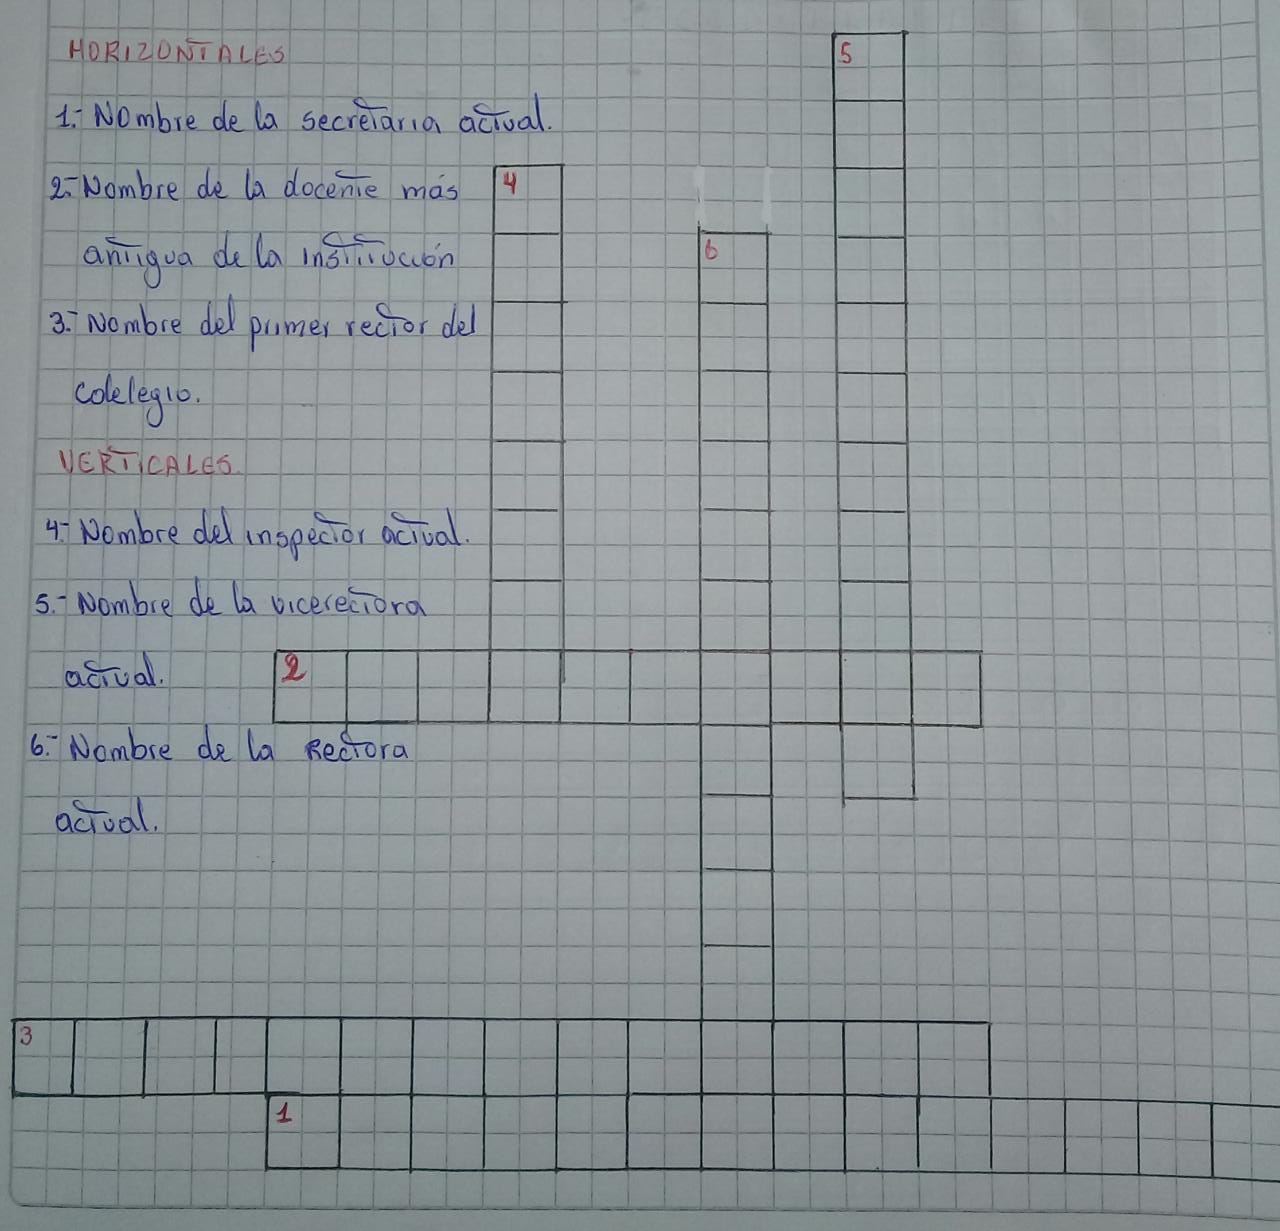 HORIZONTALES
1.- Nombre de la secretaria actual.
2.- Nombre de la docente más
antigua de la institución
3.- Nombre del primer rector del
colelegio.
VERTICALES.
4.- Nombre del inspector actual.
5.- Nombre de la vicerectora
actual.
6.- Nombre de la Rectora
actual.
5
4
6
2
3
1